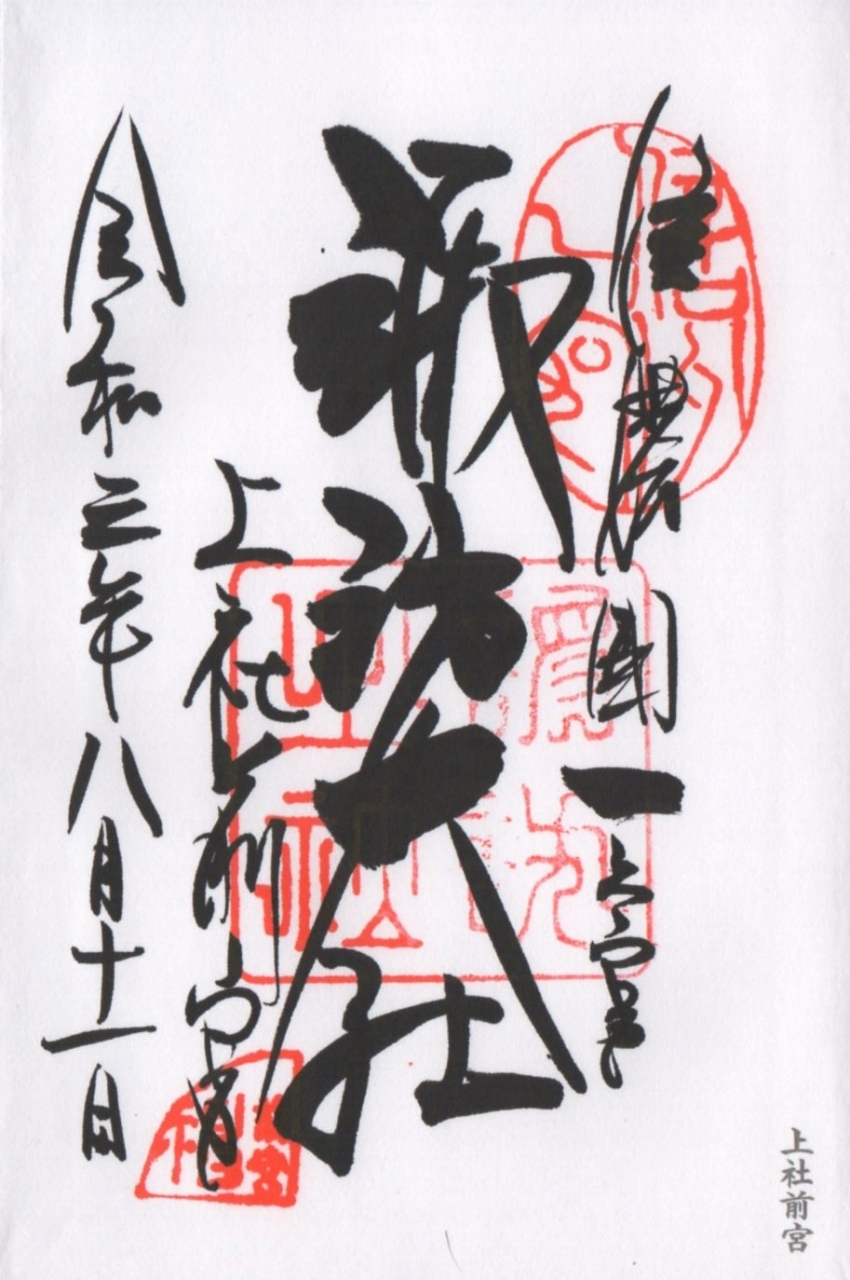 信濃國一之宮
諏訪大社
上社前宮
令和三年八月十一日
上社前宮